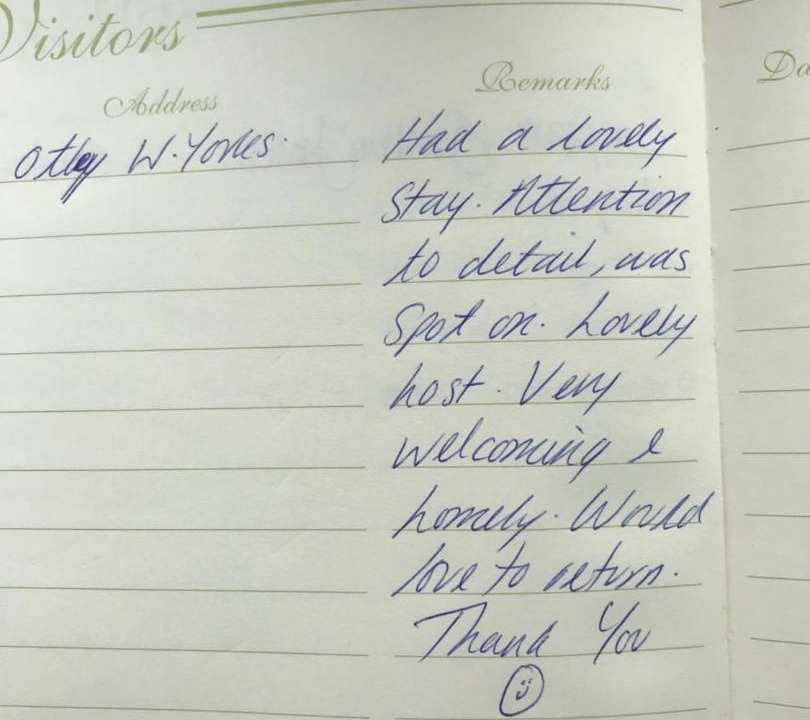 Visitors
Address
Remarks
Da
Otley W. Yorks.
Had a lovely
Stay. Attention
to detail, was
Spot on. Lovely
host. Very
welcoming &
homely. Would
love to return.
Thank You